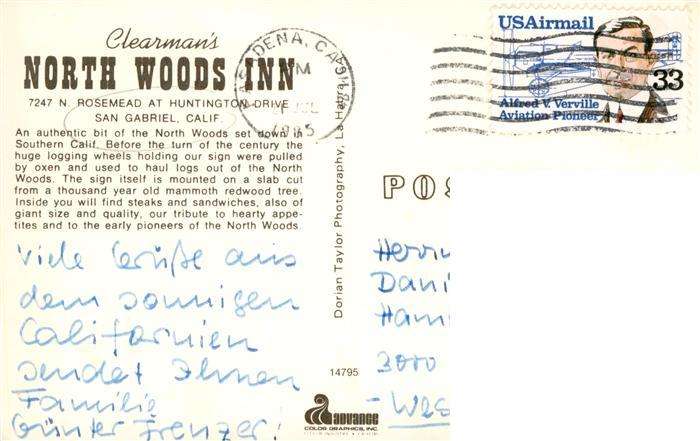 Clearman's
NORTH WOODS INN
7247 N. ROSEMEAD AT HUNTINGTON DRIVE
SAN GABRIEL, CALIF.
An authentic bit of the North Woods set down in
Southern Calif. Before the turn of the century the
huge logging wheels holding our sign were pulled
by oxen and used to haul logs out of the North
Woods. The sign itself is mounted on a slab cut
from a thousand year old mammoth redwood tree.
Inside you will find steaks and sandwiches, also of
giant size and quality, our tribute to hearty appe-
tites and to the early pioneers of the North Woods
Viele Grüße aus
dem sonnigen
Californien
sendet Ihnen
Familie
Günter Frenzer!
Dorian Taylor Photography, La Habra
14795
advance
COLOR GRAPHICS, INC.
PASADENA, CA
PM
JUL
1985
USAirmail
33
Alfred V. Verville
Aviation Pioneer
POS
Herrn
Dani
Hann
3000
- Wes